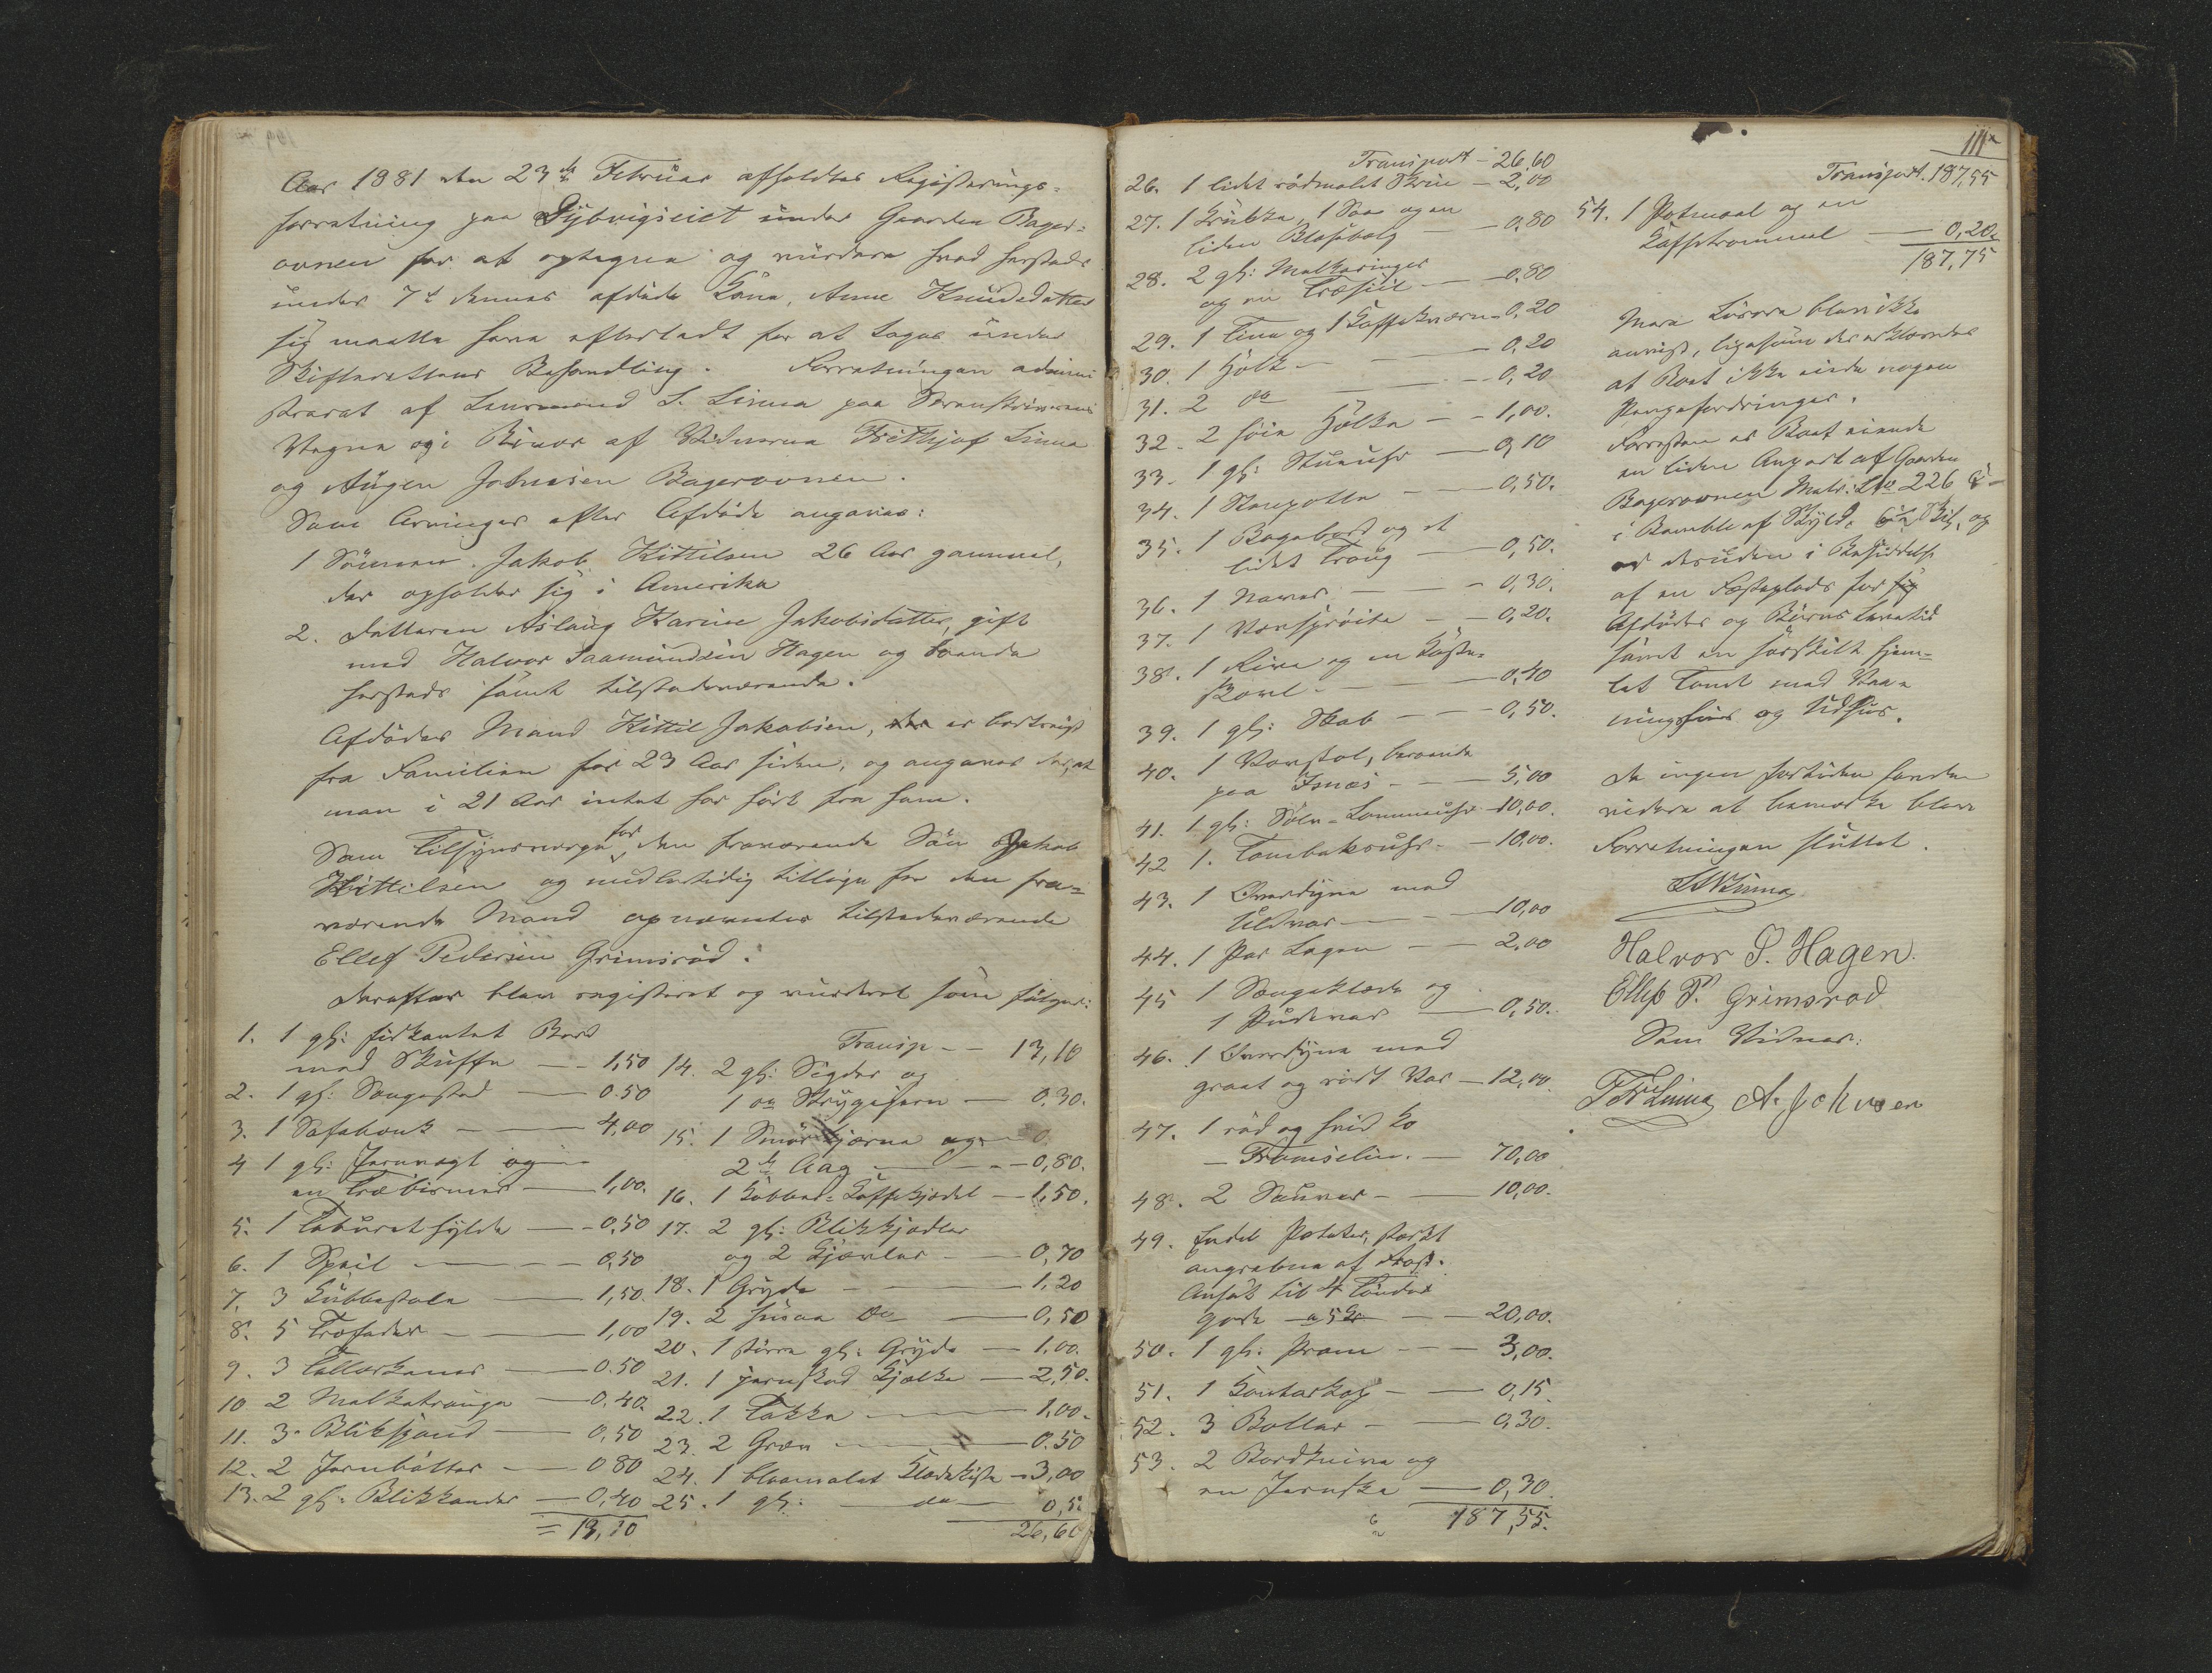 Aar 1881 den 23de Februar afholdtes Registrerings-
forretning paa Dybvigseiet under Gaarden Bager-
ovnen for at optegne og vurdere hvad herstede
under 7de dennes afdøde Kone, Anne Knudsdatter
sig maatte have efterladt for at tages under
Skifterettens Behandling. Forretningen admini
streret af Lensmand S. Linna paa Sorenskriverens
Vegne og i Biværelse af Vidnerne Frithjof Linna
og Augen Johnsen Bagerovnen.
Som Arvinger efter Afdøde angaves:
1 Sønnen Jakob Kittilsen 26 Aar gammel,
der opholder sig i Amerika
2. Datteren Aslaug Karine Jakobsdatter, gift
med Halvor Saamundsen Hagen og boende
herstede samt tilstedeværende.
Afdødes Mand Kittil Jakobsen, der er bortreist
fra Familien for 23 Aar siden, og angaves det, at
man i 21 Aar intet har hørt fra ham.
Som Tilsynsverge for den fraværende Søn Jakob
Kittilsen og midlertidig tillige for den fra-
værende Mand opnævntes tilstedeværende
Ellef Pedersen Grimsrød.
Derefter blev registreret og vurderet som følger:
1. 1 gl: firkantet Bord
med Skuffe — 1,50
2. 1 gl: Sengested — 0.50
3. 1 Sofabenk — 4,00
4 1 gl: Jernvegt og
en Træbismer — 1,00.
5. 1 Taburethylde — 0,50
6. 1 Speil — 0,50
7. 3 Kubbestole — 1,50.
8. 5 Træfade — 1,00
9. 3 Tallerkener — 0.50
10 2 Melketrauge — 0,40.
11. 3 Blikspand — 0,50
12. 2 Jernbøtter — 0 80
13. 2 gl: Blikkander — 0,40
= 13,10
Transp — 13,10
14. 2 gl: Sigder og
1 do Strygejern — 0,30.
15. 1 Smørkjerne og
2de Aag — 0,80.
16. 1 Kobber-Kaffekjedel — 1,50.
17. 2 gl: Blikkjedler
og 2 Kjævler — 0,70
18. 1 Gryde — 1,20
19. 2 smaa do — 0,50
20. 1 større gl: Gryde — 1,00.
21. 1 jernskod Kjælke — 2,50.
22. 1 Takke — 1,00.
23. 2 Grev — 0.50
24. 1 blaamalet Klædekiste — 3,00
25. 1 gl: do — 0,5
26,60
Transport — 26,60
26. 1 lidet rødmalet Skrin — 2,00
27. 1 Krukke, 1 Saa og en
liden Blæsebælg — 0,80
28. 2 gl: Melkeringer
og en Træsil — 0,80
29. 1 Tine og 1 Kaffekværn 0,20
30. 1 Hølk — 0,20
31. 2 do — 0,20
32. 2 høie Hølke — 1,00.
33. 1 gl: Stueuhr — 0,10
34. 1 Stenpotte — 0,50.
35. 1 Bagebord og et
lidet Traug — 0,50.
36. 1 Naver — 0,30.
37. 1 Vandsprøite — 0,20.
38. 1 Rive og en Kaste-
skovl — 0,40
39. 1 gl: Skab — 0,50.
40. 1 Vævstol, beroende
paa Isnæs — 5,00
41. 1 gl: Sølv-Lommeuhr 10,00.
42 1. Tombaksuhr — 10,00.
43. 1 Overdyne med
Uldvar — 10,00
44. 1 Par Lagen — 2,00
45 1 Sengeklæde og
1 Pudevar — 0,50.
46. 1 Overdyne med
graat og rødt Var — 12,00.
47. 1 rød og hvid Ko
— Framselin. — 70,00
48. 2 Sauer — 10,00.
49. Endel Poteter, stærkt
angrebne af Frost.
Ansat til 4 Tønder
gode a 5 Kr — 20,00.
50. 1 gl: Pram — 3,00.
51. 1 Konterhog — 0,15.
52. 3 Boller — 0,30.
53. 2 Bordknive og
en Jernske — 0,30.
187,55.
111
Transport. 187,55
54. 1 Potmaal og en
Kaffetrommel — 0,20.
187,75
Mere Løsøre blev ikke
anvist, ligesom der erklæredes
at Boet ikke eiede nogen
Pengefordringer.
Forresten er Boet eiende
en liden Anpart af Gaarden
Bagerovnen Matr: Lno 226
i Bamble af Skyld. Skil, og
er desuden i Besiddelse
af en Fæsteplads for
Afdødes og Børns Levetid
samt en særskilt hjem-
let Tomt med Vaa-
ningshus og Udhus.
Da ingen fortiden havde
videre at bemærke blev
Forretningen sluttet.
SLinna
Halvor S. Hagen.
Ellef P. Grimsrød
Som Vidner:
FrLinna A. Johnsen